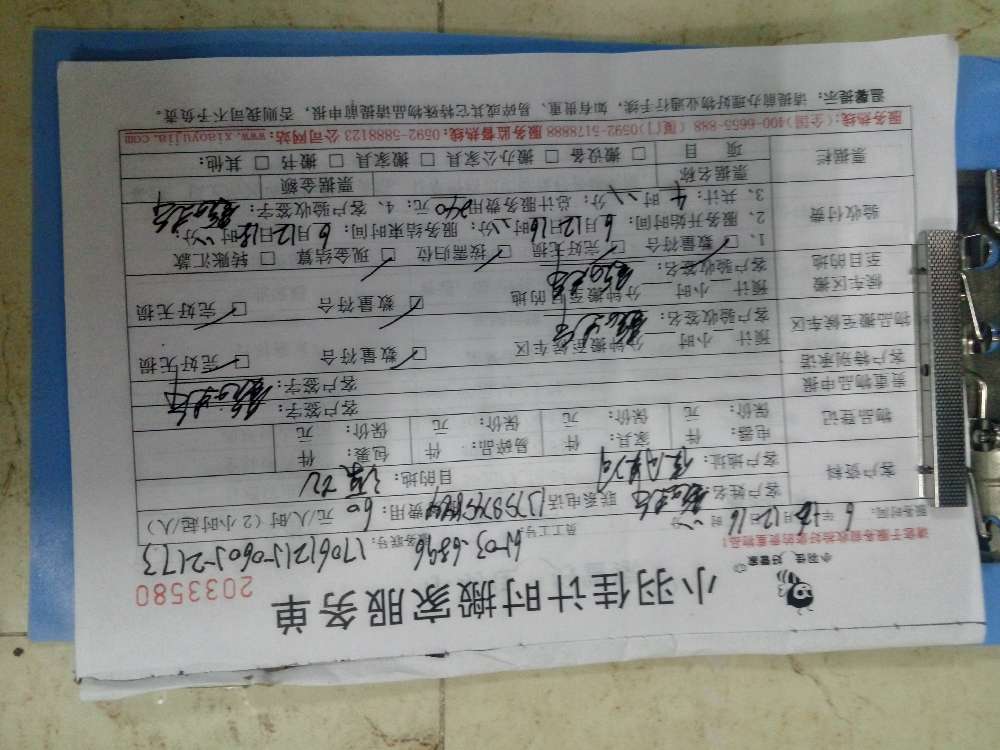 小羽佳 好管家
小羽佳计时搬家服务单
2033580
请您于服务前收拾好您的贵重物品!
员工工号: 6503-6896 服务联号: 170612150605-2173
服务时间: 年 6 月 12 日 16 时 分
客户资料
客户姓名: 联系电话 费用: 60 元/人/时 (2小时起/人)
客户地址: 目的地:
物品登记
电器: 件 家具: 件 易碎品: 件 包裹: 件
保价: 元 保价: 元 保价: 元 保价: 元
贵重物品申报 客户签字:
客户特别承诺 客户签字:
物品搬至候车区
预计 小时 分钟搬至候车区 □ 数量符合 □ 完好无损
客户验收签名:
候车区搬至目的地
预计 小时 分钟搬至目的地 □ 数量符合 □ 完好无损
客户验收签名:
验收付费
1、 □ 数量符合 □ 完好无损 □ 按需归位 □ 现金结算 □ 转账汇款
2、服务开始时间: 6月12日16时 分; 服务结束时间: 6月12日18时 分;
3、共计: 4 时 分; 总计服务费用 240 元; 4、客户验收签字:
票据栏
票据名称 票据金额
项 目 □ 搬设备 □ 搬办公家具 □ 搬家具 □ 搬书 □ 其他:
服务热线:(全国)400-6655-888 (厦门)0592-5178888 服务监督热线: 0592-5888123 公司网站: www.xiaoyujia.com
温馨提示: 请提前办理好物业通行手续, 如有贵重、易碎或其它特殊物品请提前申报, 否则我司不予负责。